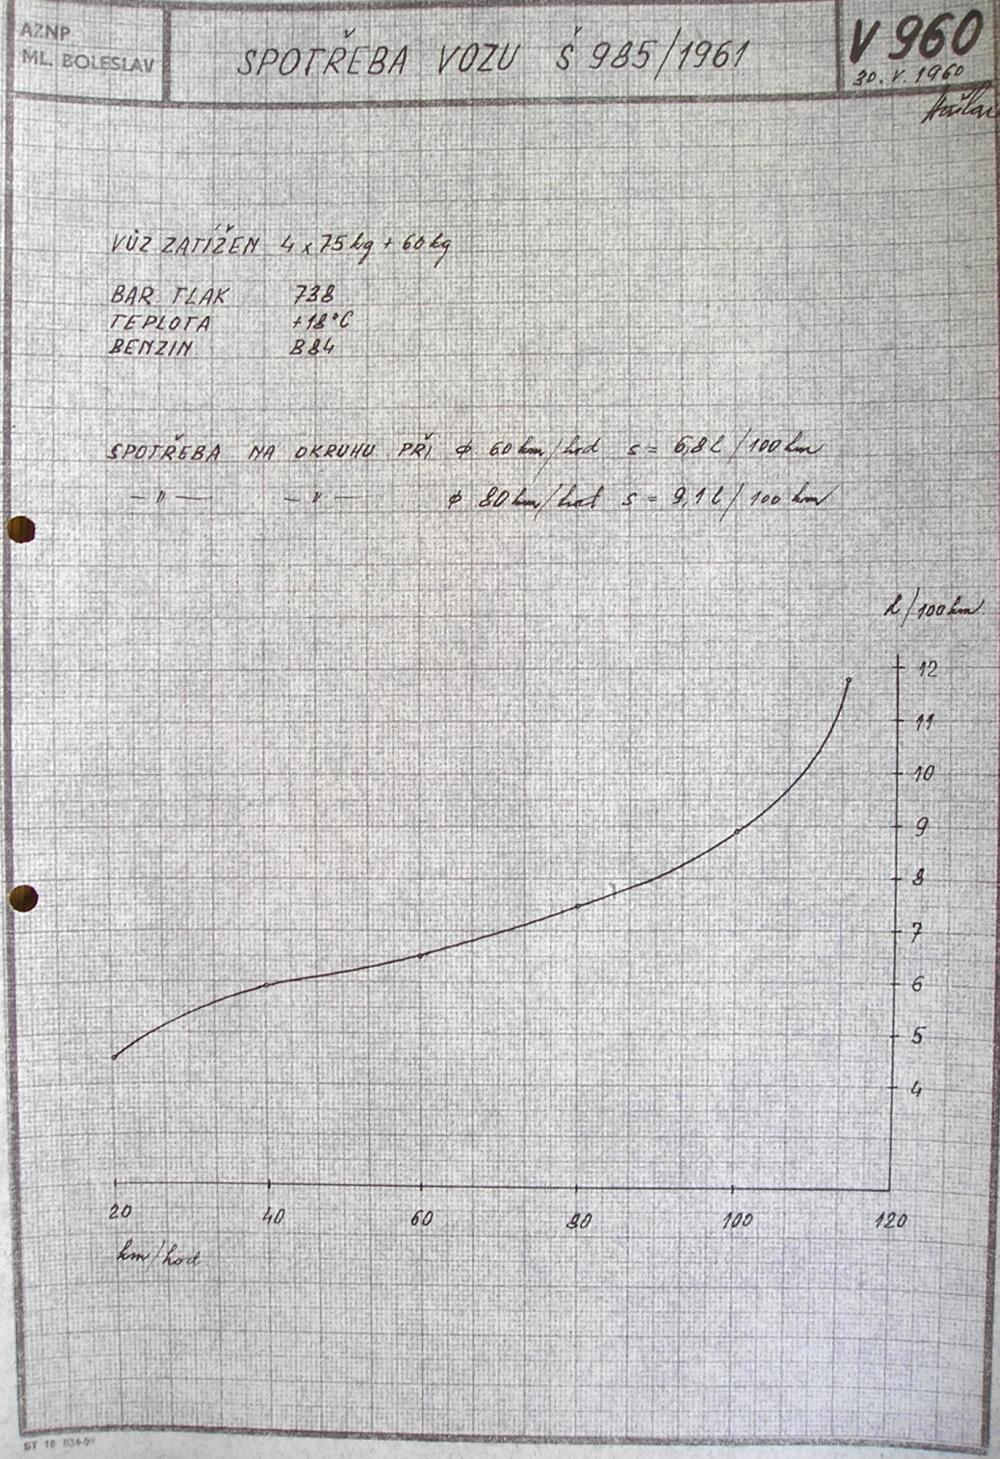 AZNP
ML. BOLESLAV
SPOTŘEBA VOZU Š 985/1961
V 960
30. V. 1960
VŮZ ZATÍŽEN 4 x 75 kg + 60 kg
BAR. TLAK 738
TEPLOTA +18°C
BENZIN B 84
SPOTŘEBA NA OKRUHU PŘI ϕ 60 km/hod s = 6,8 l/100 km
— " — — " — ϕ 80 km/hod s = 9,1 l/100 km
l/100 km
12
11
10
9
8
7
6
5
4
20 40 60 80 100 120
km/hod